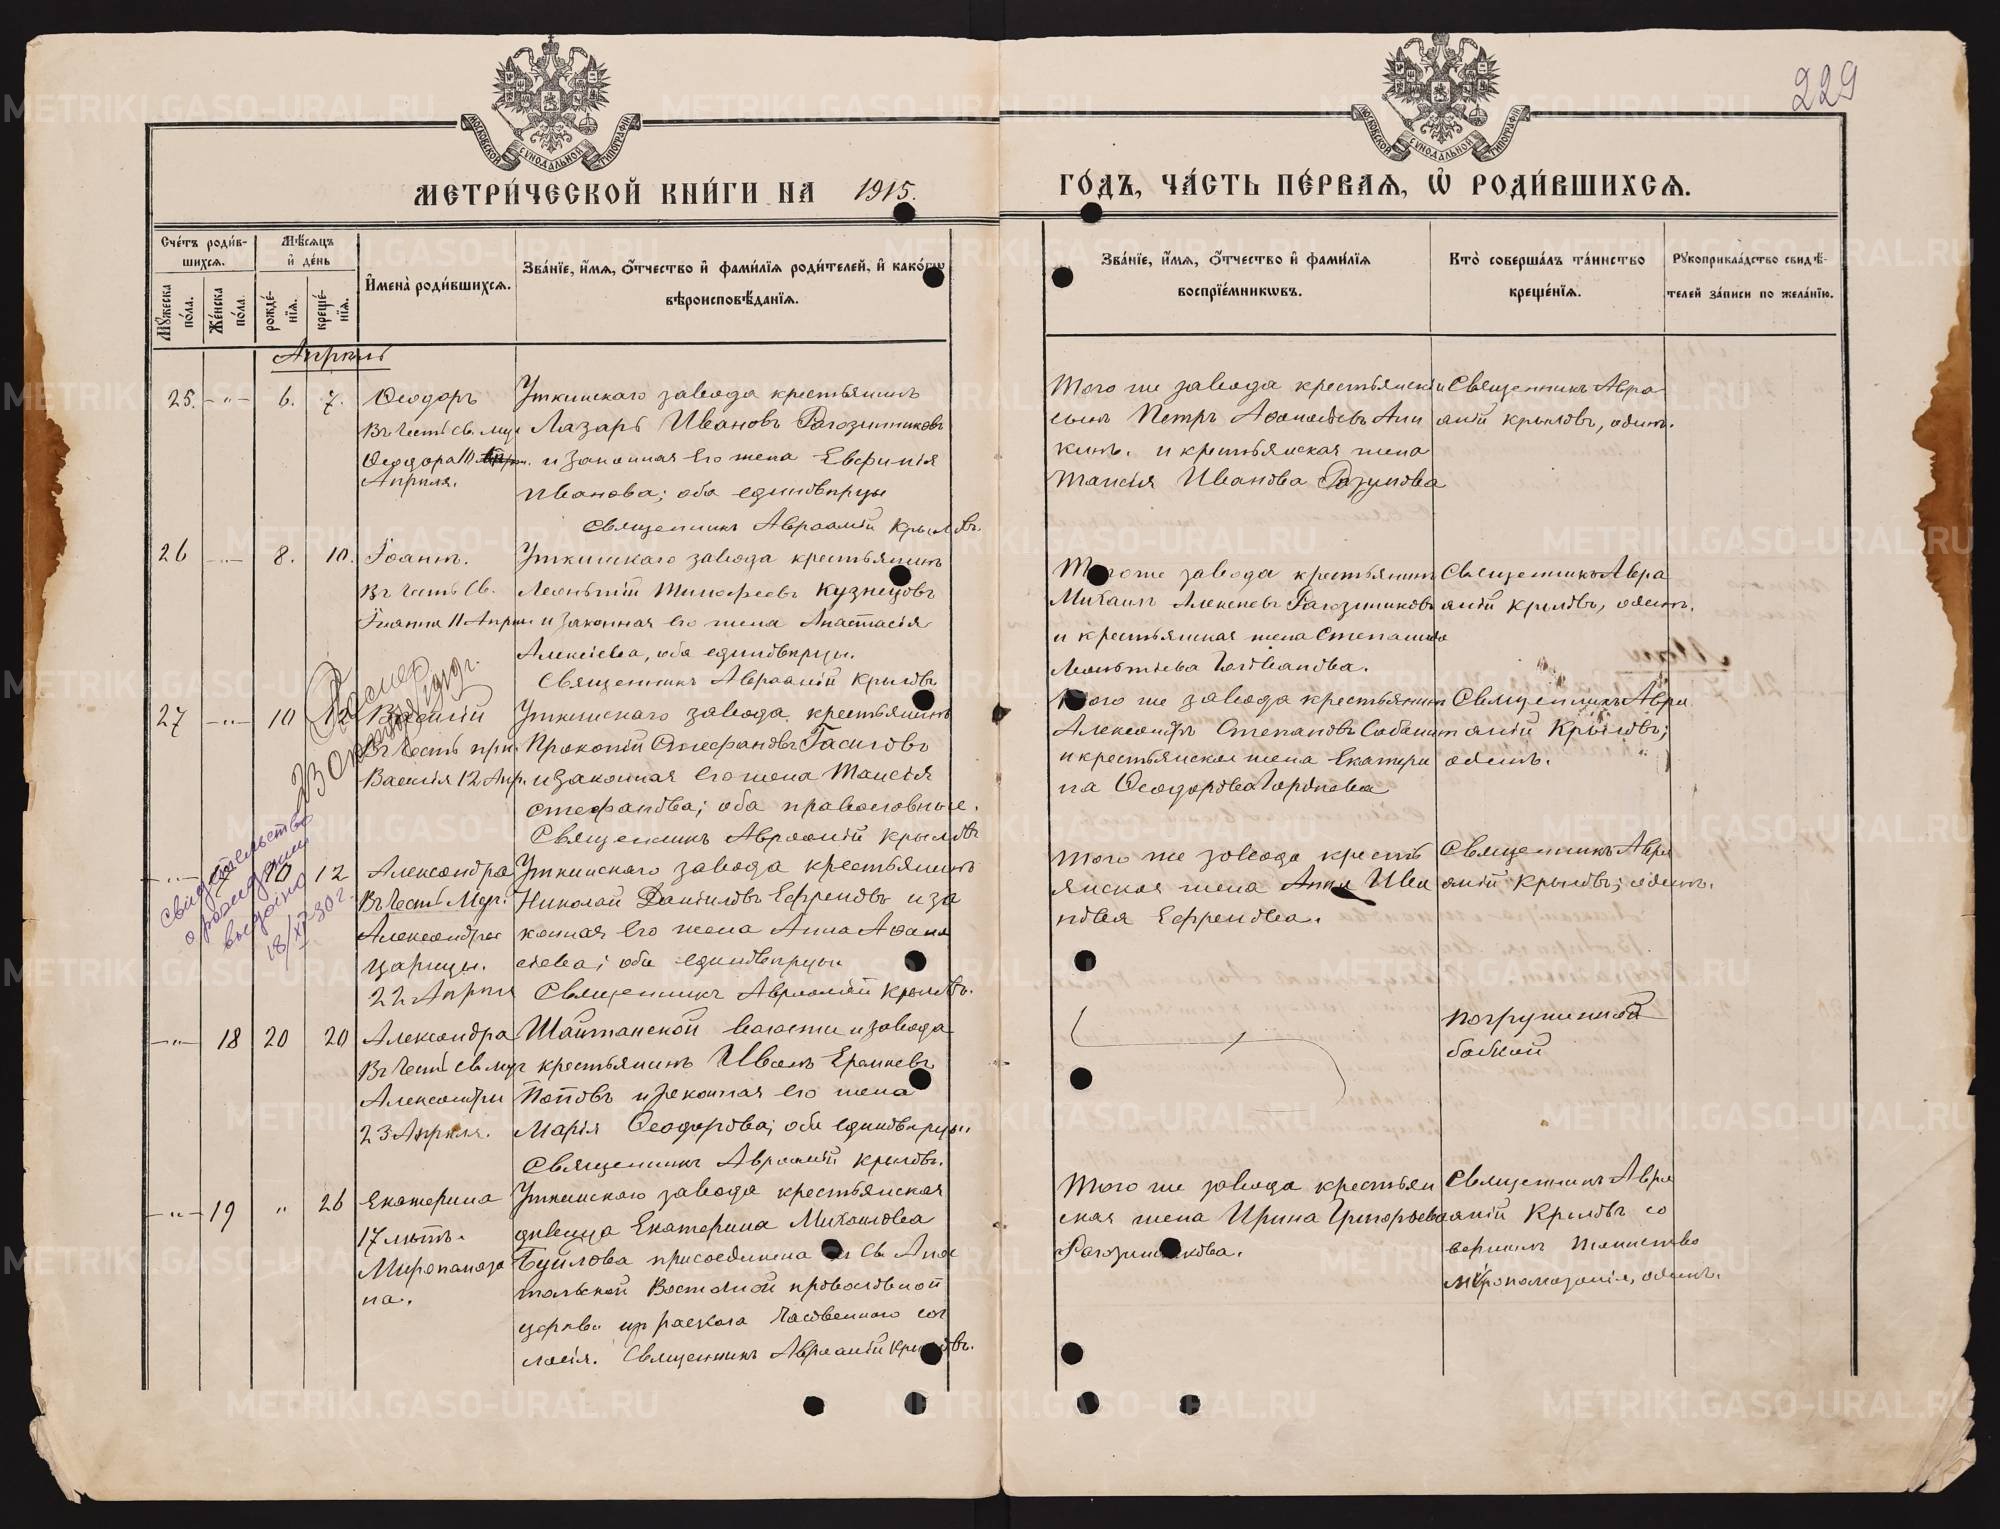 229
МОСКОВСКОЙ СѴНОДАЛЬНОЙ ТИПОГРАФІИ
МОСКОВСКОЙ СѴНОДАЛЬНОЙ ТИПОГРАФІИ
МЕТРИ́ЧЕСКОЙ КНИ́ГИ НА 1915.
ГО́ДЪ, ЧА́СТЬ ПЕ́РВАѦ, Ѡ҆ РОДИ́ВШИХСѦ.
Сче́тъ роди́в-
шихсѧ.
Мѣ́сѧцъ
и҆ де́нь
Мꙋ́жеска по́ла.
Же́нска по́ла.
рожде́-нїѧ.
креще́-нїѧ.
И҆мена̀ роди́вшихсѧ.
Зва́нїе, и҆́мѧ, ѻ҆́тчество и҆ фами́лїѧ роди́телей, и҆ како́гѡ
вѣроисповѣ́данїѧ.
Зва́нїе, и҆́мѧ, ѻ҆́тчество и҆ фами́лїѧ
воспрїе́мникѡвъ.
Кто̀ соверша́лъ та́инство
креще́нїѧ.
Рꙋкоприкла́дство свидѣ́-
телей за́писи по жела́нїю.
Апрѣль
25. -„- 6. 7. Ѳеодоръ
Въ честь св. муч
Ѳеодора 10
Апрѣля.
Уткинскаго завода крестьянинъ
Лазарь Ивановъ Рагозинниковъ
и законная его жена Евфимія
Иванова; оба единовѣрцы
Священникъ Авраамій Крыловъ.
Того же завода крестьянскій
сынъ Петръ Аѳанасьевъ Ани
кинъ. и крестьянская жена
Таисія Иванова Разумова
Священникъ Авра
амій Крыловъ, одинъ.
26 -„- 8. 10. Іоаннъ.
Въ честь Св.
Іоанна 11 Апрѣля
Уткинскаго завода крестьянинъ
Леонтій Тимофеевъ Кузнецовъ
и законная его жена Анастасія
Алексіева, оба единовѣрцы.
Священникъ Авраамій Крыловъ
Того же завода крестьянинъ
Михаилъ Алексѣевъ Рагозинниковъ
и крестьянская жена Степанида
Леонтіева
Священникъ Авра
амій Крыловъ, одинъ.
27 -„- 10 12 Василій
Въ честь прп.
Василія 12 Апр.
Уткинскаго завода крестьянинъ
Прокопій Стефановъ Гасиловъ
и законная его жена Таисія
Стефанова; оба православные.
Священникъ Авраамій Крыловъ
Того же завода крестьянинъ
Александръ Степановъ Сабанинъ
и крестьянская жена Екатери
на Ѳеодорова
Священникъ Авра
амій Крыловъ;
одинъ.
свидетельство
о рождении
выдано
18/XI-30 г.
-„- 10 12 Александра
Въ честь Муч.
Александры
царицы.
22 Апрѣля
Уткинскаго завода крестьянинъ
Николай Даніиловъ Ефремовъ и за
конная его жена Анна Аѳана
сіева; оба единовѣрцы
Священникъ Авраамій Крыловъ.
Того же завода кресть
янская жена Анна Ива
нова Ефремова.
Священникъ Авра
амій Крыловъ; одинъ.
-„- 18 20 20 Александра
Въ честь св муч
Александры
23 Апрѣля.
Шайтанской волости и завода
крестьянинъ Иванъ Еремѣевъ
Поповъ и законная его жена
Марія Ѳеодорова; оба единовѣрцы.
Священникъ Авраамій Крыловъ.
Погружена
бабкой
-„- 19 „ 26 Екатерина
17 лѣтъ.
Миропомаза
на.
Уткинскаго завода крестьянская
дѣвица Екатерина Михаилова
Буйлова присоединена къ Св. Апос
тольской Восточной православной
церкви изъ раскола часовеннаго сог
ласія. Священникъ Авраамій Крыловъ.
Того же завода крестьян
ская жена Ирина Григорьева
Рагозинникова.
Священникъ Авра
амій Крыловъ со
вершилъ Таинство
мѵропомазанія, одинъ.
METRIKI.GASO-URAL.RU